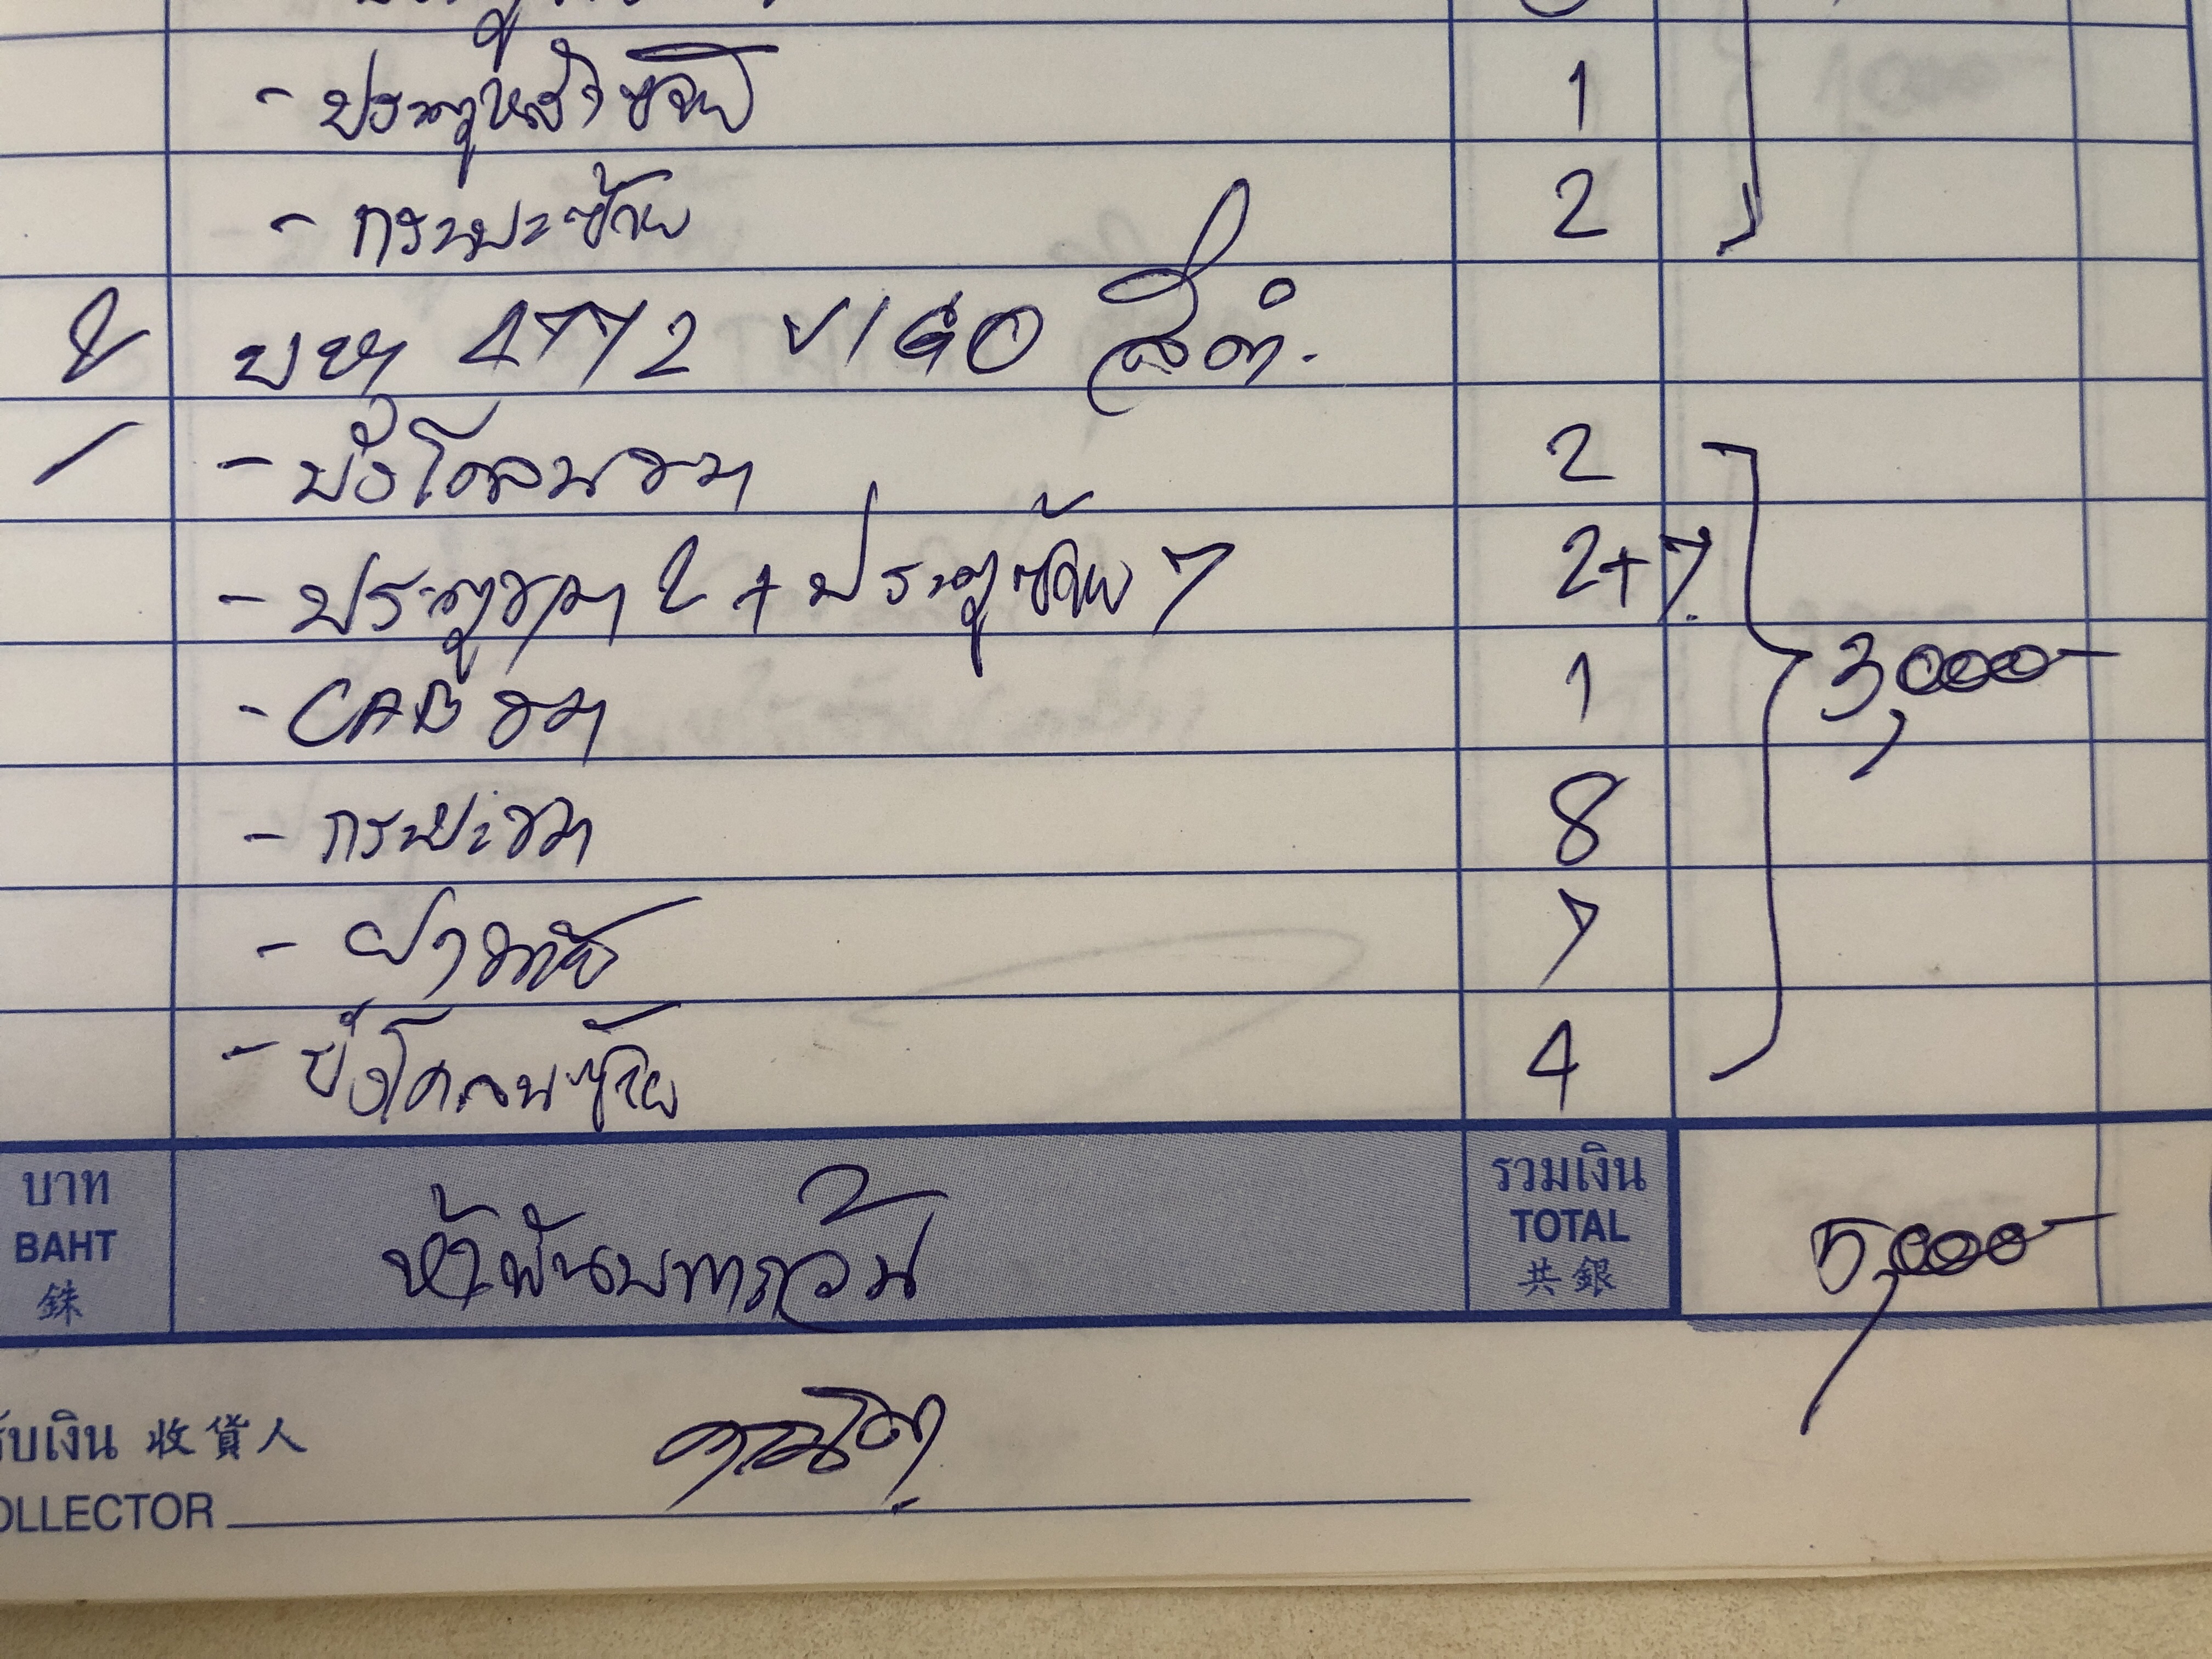 - ประตูหน้าซ้าย 1
- กระบะซ้าย 2
2 บหฯ 4772 VIGO สีดำ.
- บังโคลนขวา 2
- ประตูขวา 2 + ประตูซ้าย 7 2+7.
- CAB ขวา 1 3,000-
- กระบะขวา 8
- ฝาท้าย 7
- บังโคลนซ้าย 4
บาท BAHT 銖 ห้าพันบาทถ้วน รวมเงิน TOTAL 共銀 5,000-
รับเงิน 收貨人
COLLECTOR